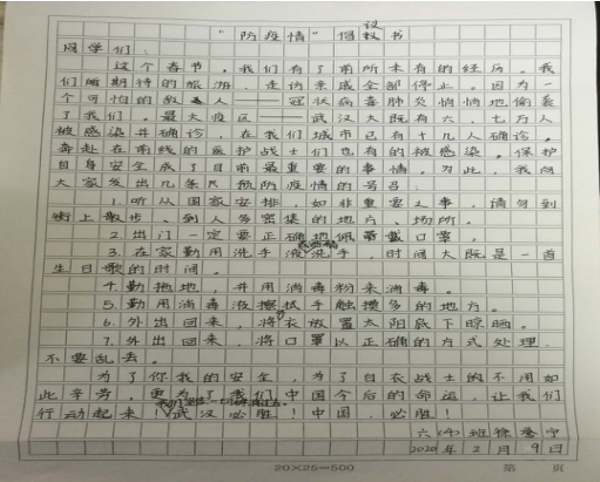 “防疫情”倡议书
同学们：
这个春节，我们有了前所未有的经历。我
们缅期待的旅游、走访亲戚全部停止。因为一
个可怕的敌人——冠状病毒肺炎悄悄地偷袭
了我们。最大疫区——武汉大既有六、七万人
被感染并确诊，在我们城市已有十几人确诊。
奔赴在前线的医护战士们也有的被感染。保护
自身安全成了目前最重要的事情。为此，我向
大家发出几条预防疫情的号召：
1.听从国家安排，如非重要之事，请勿到
街上散步、到人多密集的地方、场所。
2.出门一定要正确地佩戴口罩。
3.在家勤用洗手液洗手，时间大既是一首
生日歌的时间。
4.勤拖地，并用消毒粉来消毒。
5.勤用消毒液擦拭手触摸多的地方。
6.外出回来，将衣放置太阳底下晾晒。
7.外出回来，将口罩以正确的方式处理，
不要乱丢。
为了你我的安全，为了白衣战士的不用如
此辛劳，更为了我们中国今后的命运，让我们
行动起来！武汉必胜！中国，必胜！
六（4）班徐
2020年2月9日
20×25=500
第 页